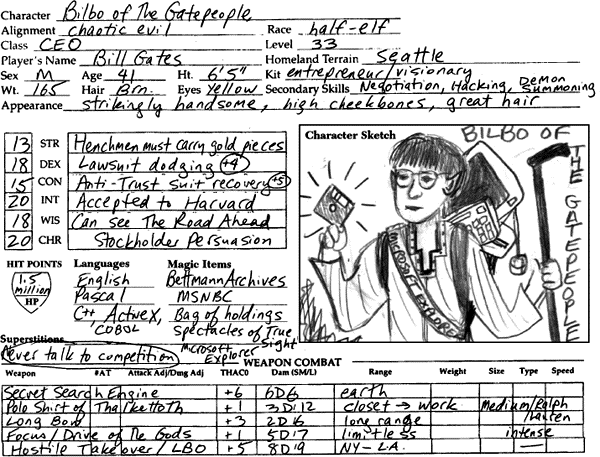 Character Bilbo of The Gatepeople
Alignment chaotic evil Race half-elf
Class CEO Level 33
Player's Name Bill Gates Homeland Terrain Seattle
Sex M Age 41 Ht. 6'5" Kit entrepreneur/visionary
Wt. 165 Hair Brn. Eyes Yellow Secondary Skills Negotiation, Hacking, Demon Summoning
Appearance strikingly handsome, high cheekbones, great hair
13 STR Henchmen must carry gold pieces
18 DEX Lawsuit dodging +4
15 CON Anti-Trust suit recovery +5
20 INT Accepted to Harvard
18 WIS Can see The Road Ahead
20 CHR Stockholder Persuasion
Character Sketch
BILBO OF
THE GATEPEOPLE
MICROSOFT EXPLORER
HIT POINTS
1.5 million HP
Languages
English
Pascal
C++ ActiveX,
COBOL
Magic Items
Bettmann Archives
MSNBC
Bag of holdings
Spectacles of True Sight
Microsoft Explorer
Superstitions
Never talk to competition
WEAPON COMBAT
Weapon #AT Attack Adj/Dmg Adj THAC0 Dam (SM/L) Range Weight Size Type Speed
Secret Search Engine +6 6D6 earth
Polo Shirt of Tharkettoth +1 3D12 closet → work Medium/Ralph Lauren
Long Bow +3 2D16 long range
Focus/Drive of The Gods +1 5D17 limitless intense
Hostile Takeover/LBO +5 8D19 NY-L.A. —